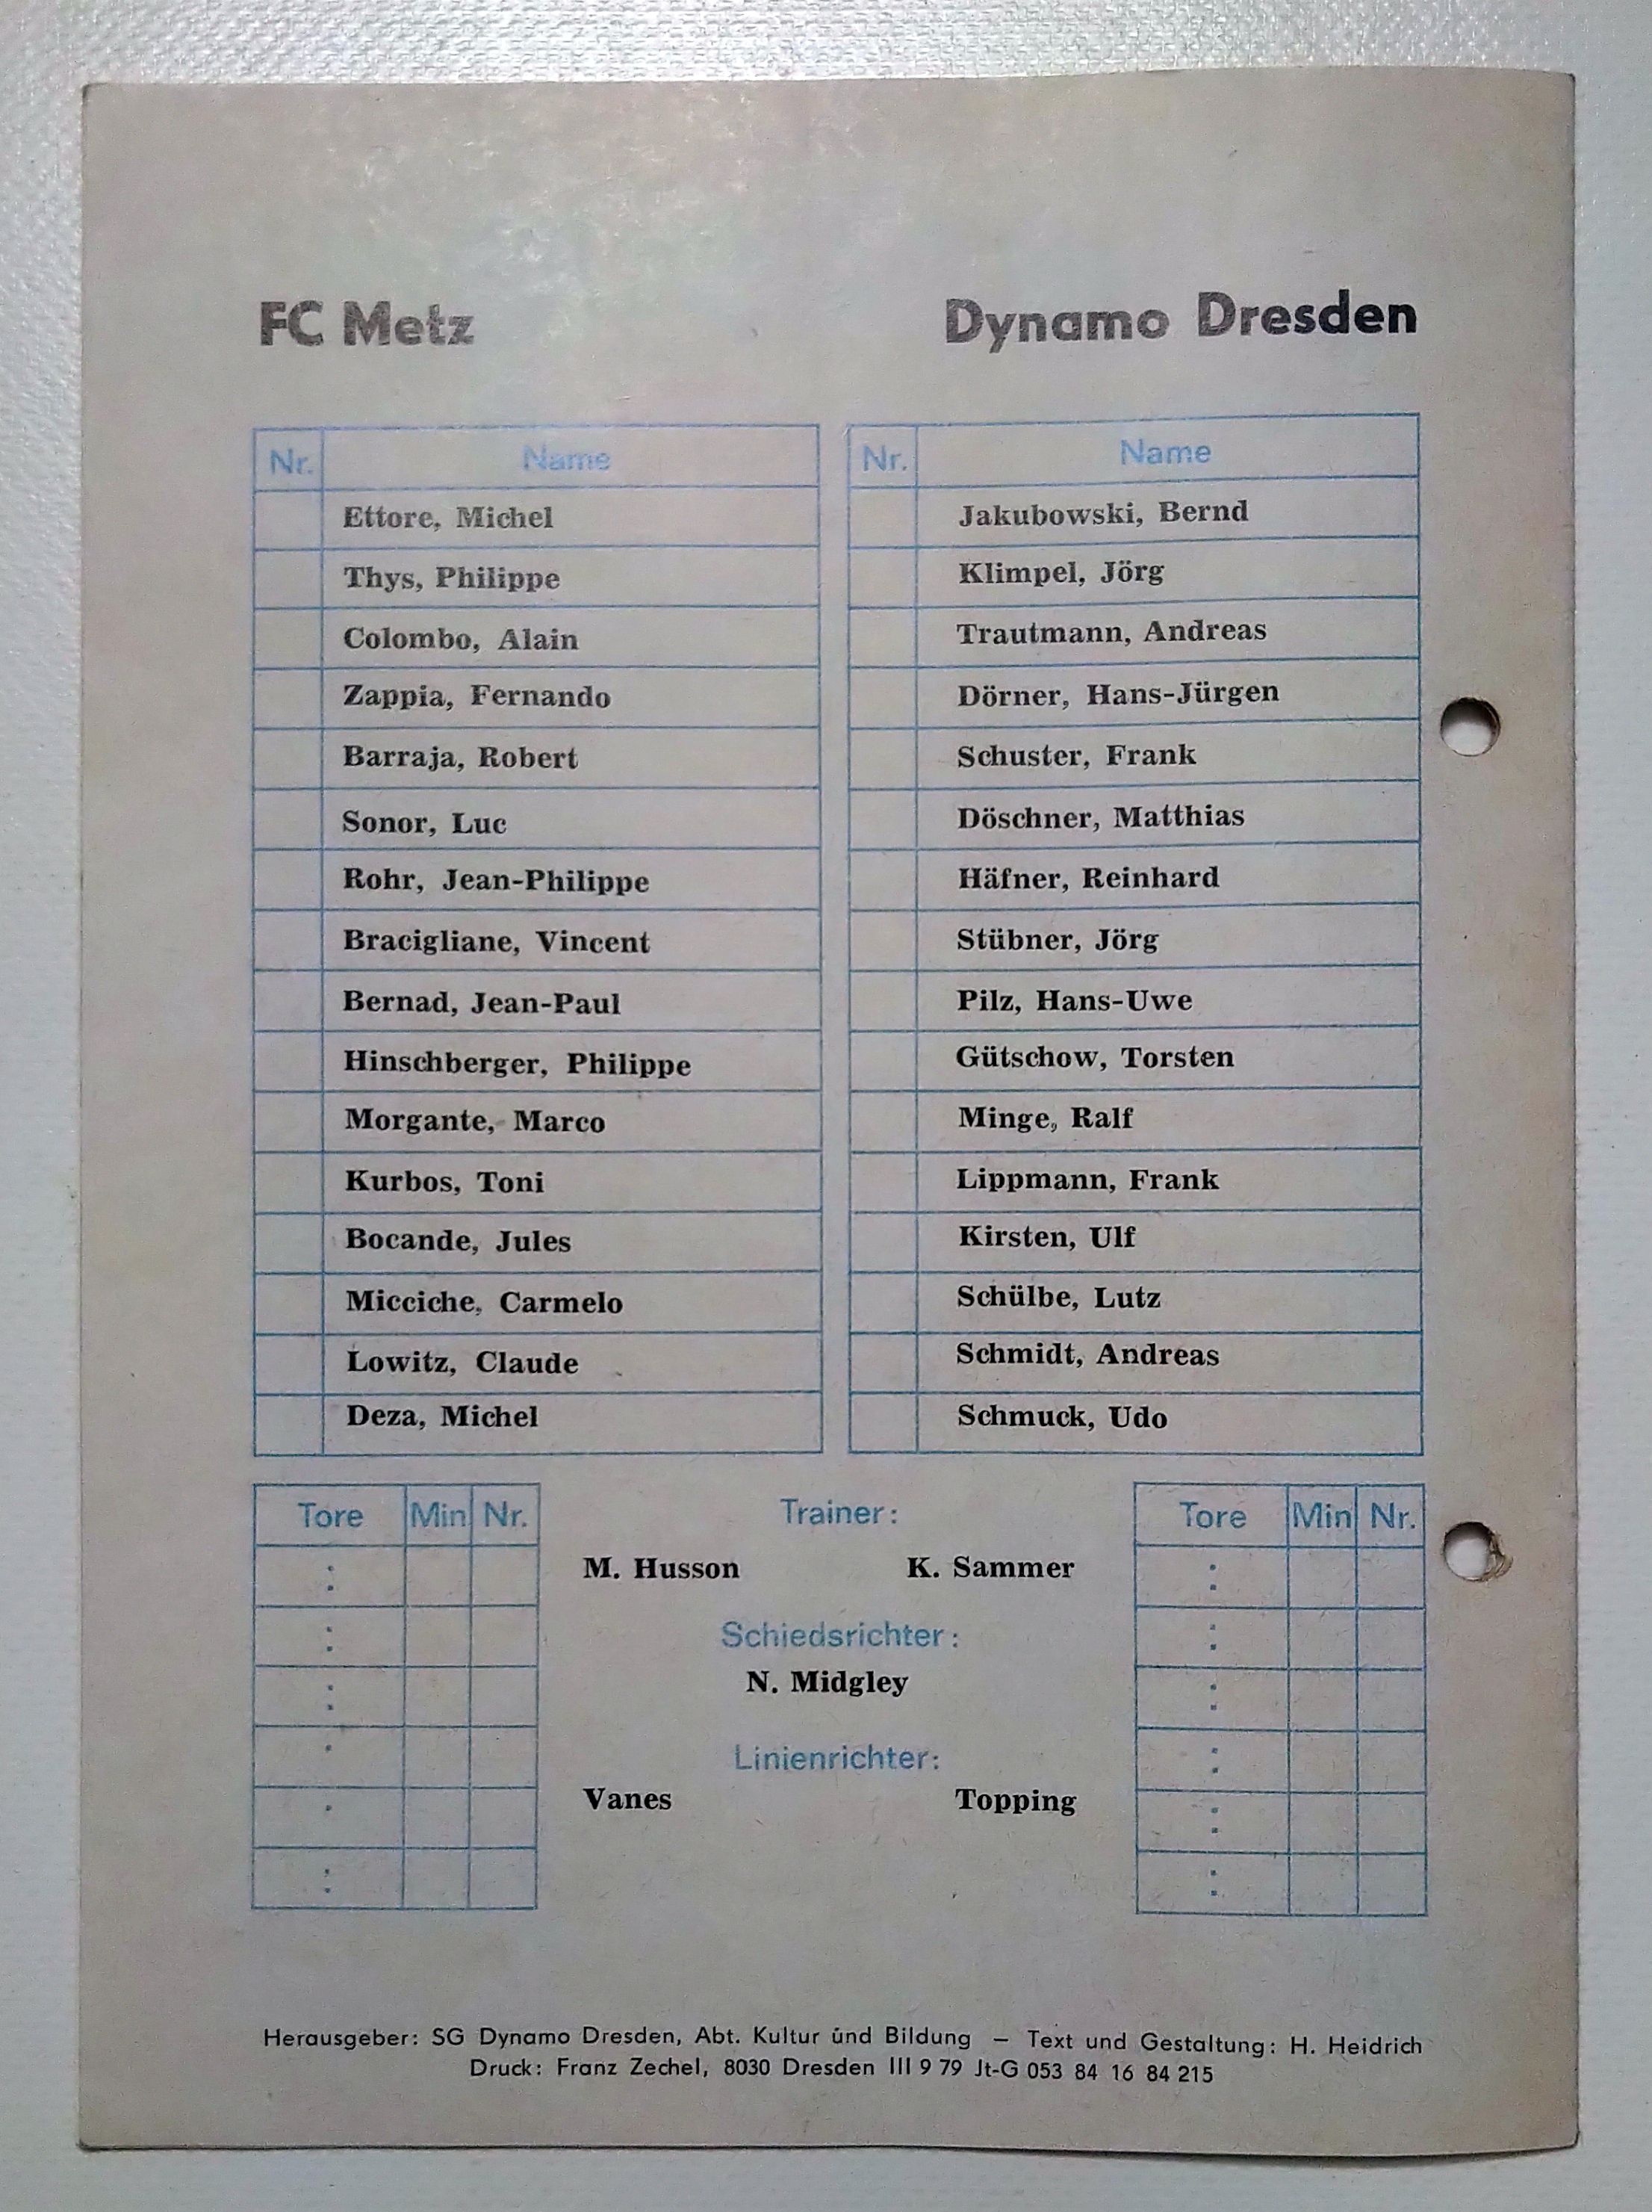 FC Metz Dynamo Dresden
Nr. Name Nr. Name
Ettore, Michel Jakubowski, Bernd
Thys, Philippe Klimpel, Jörg
Colombo, Alain Trautmann, Andreas
Zappia, Fernando Dörner, Hans-Jürgen
Barraja, Robert Schuster, Frank
Sonor, Luc Döschner, Matthias
Rohr, Jean-Philippe Häfner, Reinhard
Bracigliane, Vincent Stübner, Jörg
Bernad, Jean-Paul Pilz, Hans-Uwe
Hinschberger, Philippe Gütschow, Torsten
Morgante, Marco Minge, Ralf
Kurbos, Toni Lippmann, Frank
Bocande, Jules Kirsten, Ulf
Micciche, Carmelo Schülbe, Lutz
Lowitz, Claude Schmidt, Andreas
Deza, Michel Schmuck, Udo
Tore Min Nr. Trainer: Tore Min Nr.
: M. Husson K. Sammer :
: Schiedsrichter: :
: N. Midgley :
: Linienrichter: :
: Vanes Topping :
: :
Herausgeber: SG Dynamo Dresden, Abt. Kultur und Bildung — Text und Gestaltung: H. Heidrich
Druck: Franz Zechel, 8030 Dresden III 9 79 Jt-G 053 84 16 84 215